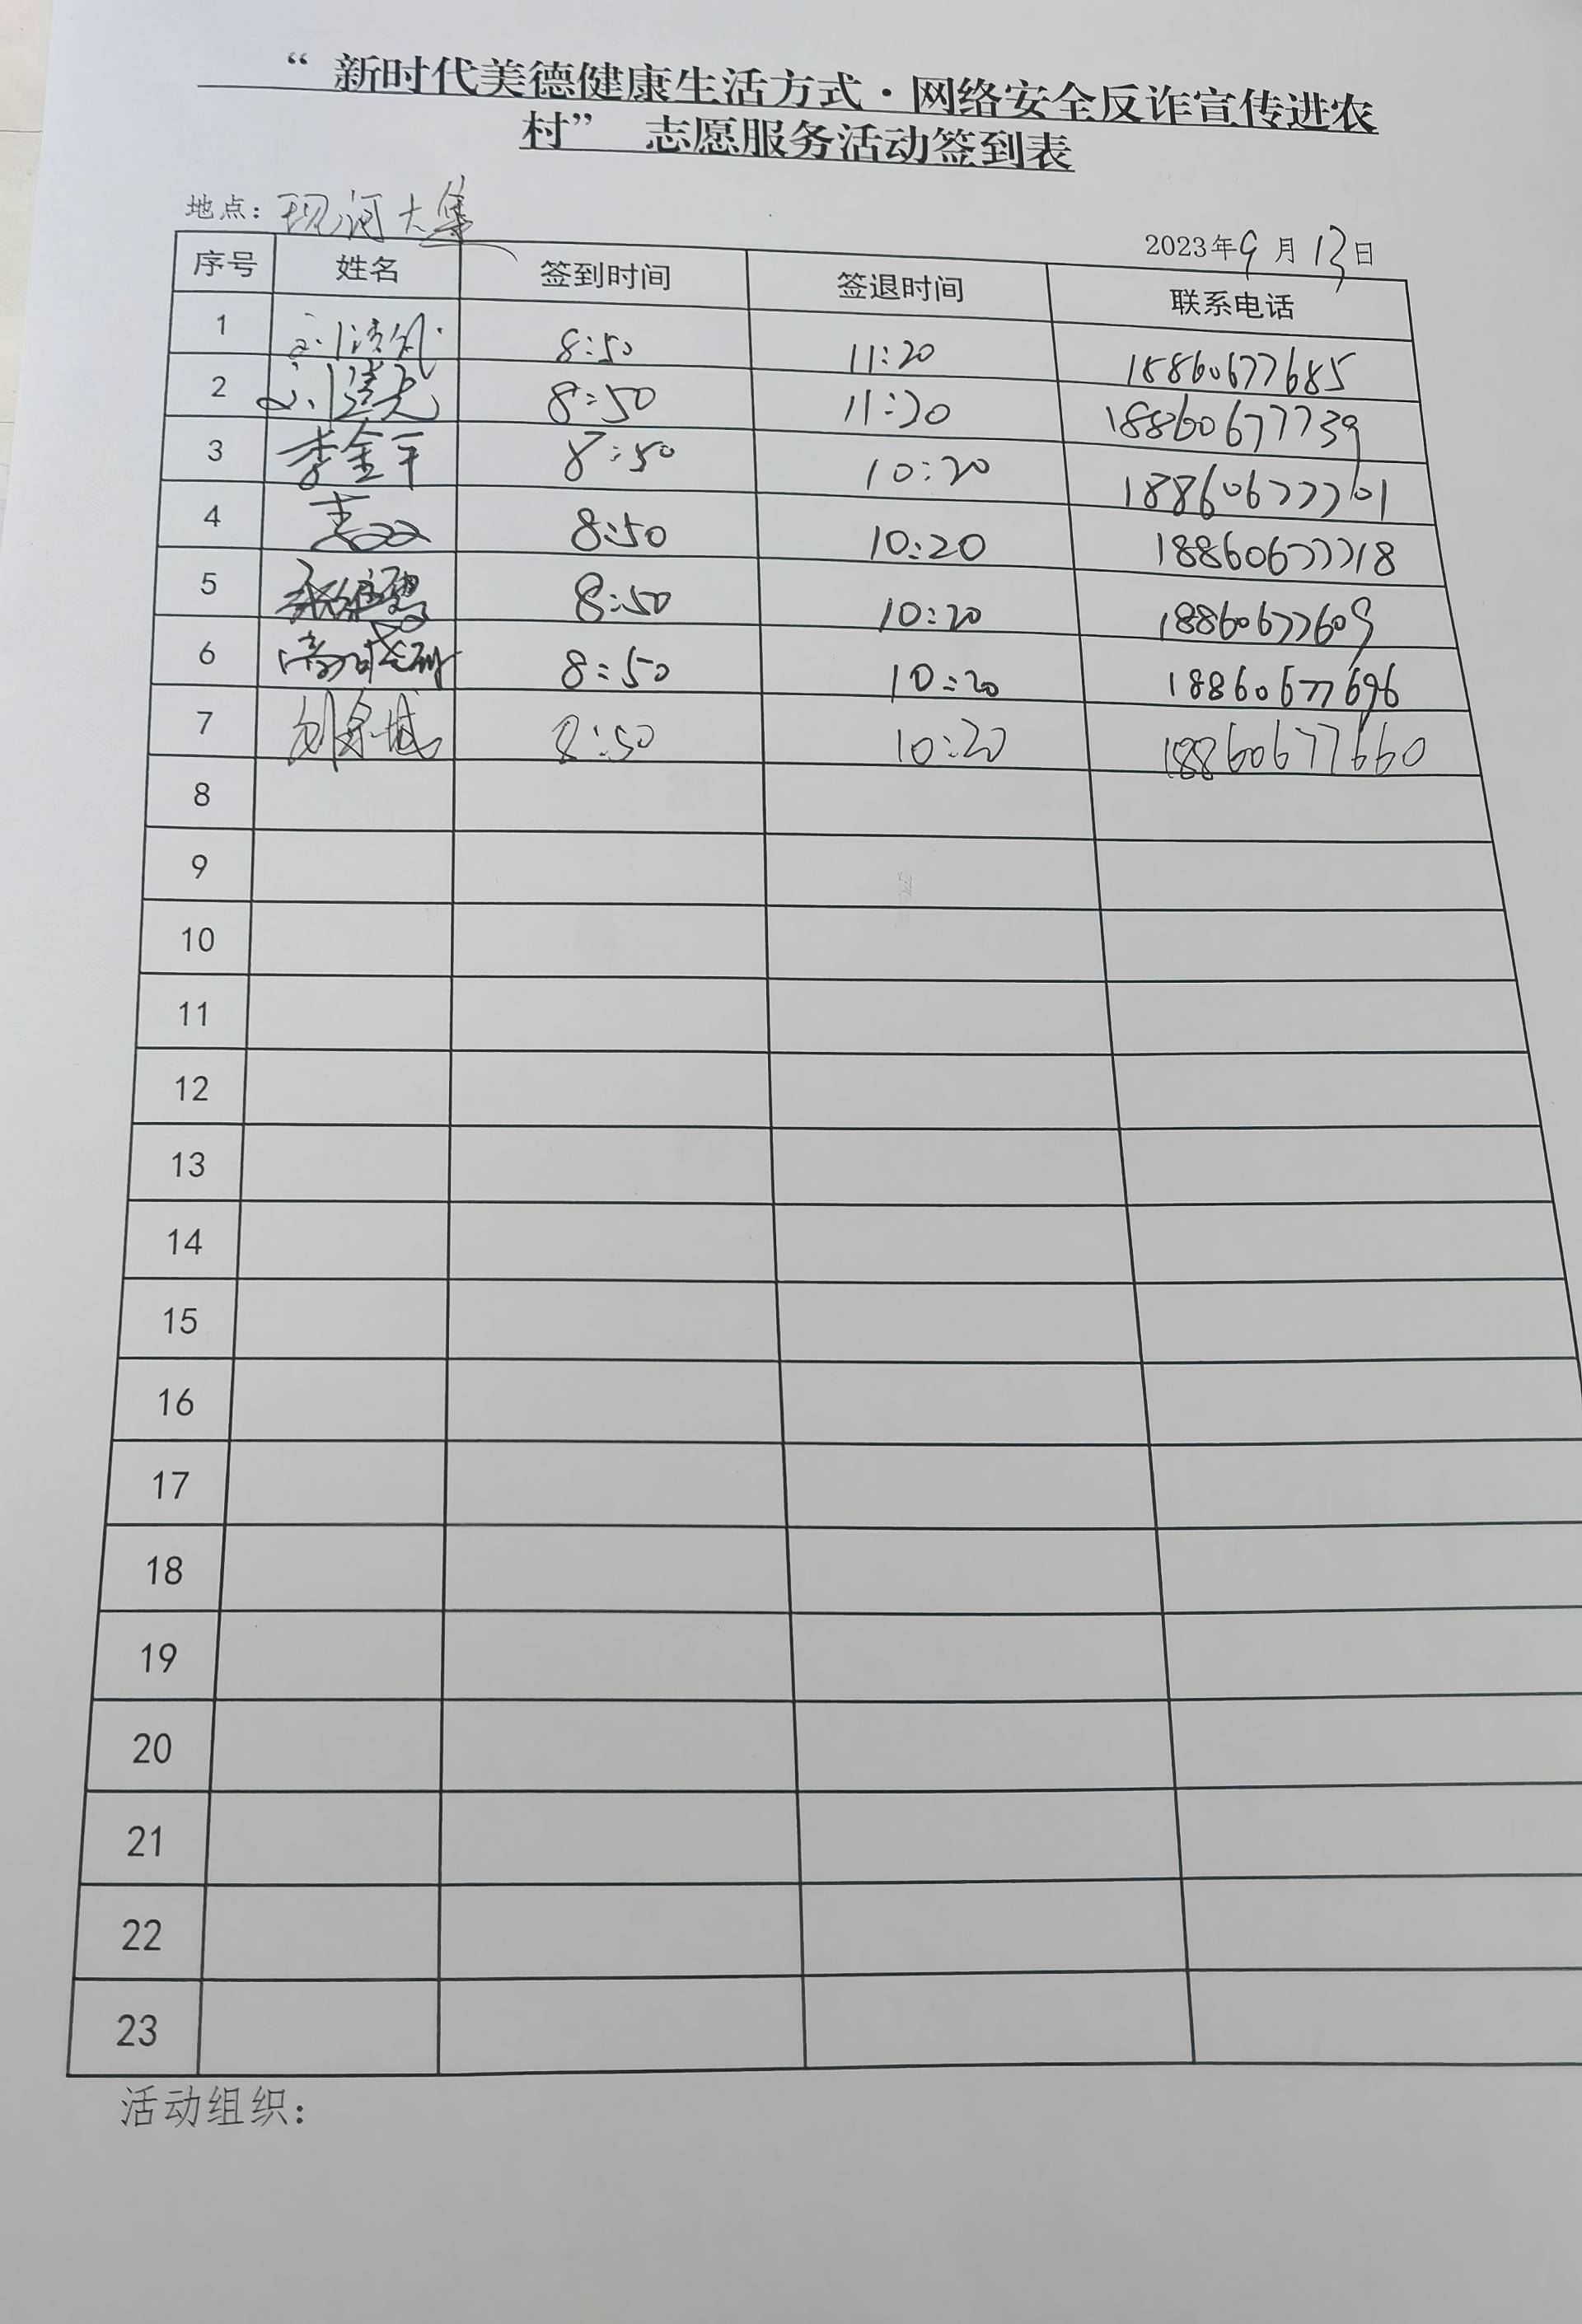 “ 新时代美德健康生活方式·网络安全反诈宣传进农
村” 志愿服务活动签到表
地点: 现河大集
2023年9月13日
序号 姓名 签到时间 签退时间 联系电话
1 8:50 11:20 18860677685
2 8:50 11:20 18860677739
3 李金平 8:50 10:20 18860677701
4 8:50 10:20 18860677718
5 8:50 10:20 18860677609
6 8:50 10:20 18860677696
7 8:50 10:20 18860677660
8
9
10
11
12
13
14
15
16
17
18
19
20
21
22
23
活动组织: